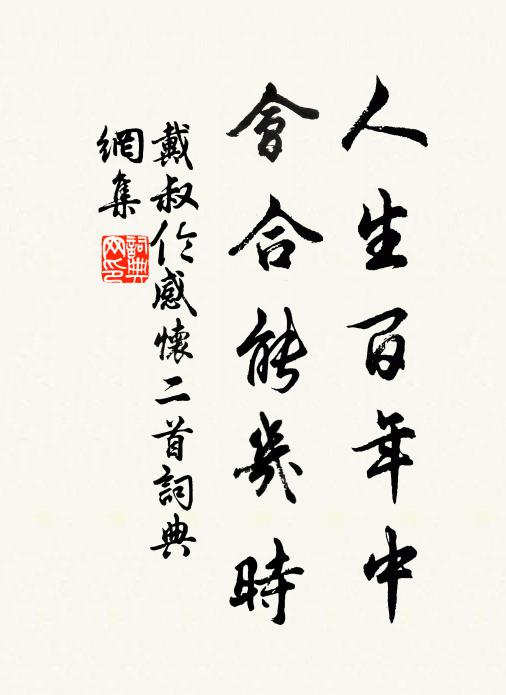 人生百年中
會合能幾時
戴叔伦感懷二首詞典
網集
詞典网印